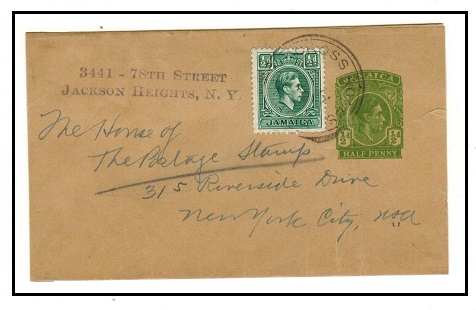 3441 - 78TH STREET
JACKSON HEIGHTS, N. Y.
½ᵈ ½ᵈ
JAMAICA
OSS
JAMAICA
½ᵈ ½ᵈ
HALF PENNY
The House of
The Belage Stamp
315 Riverside Drive
New York City, USA